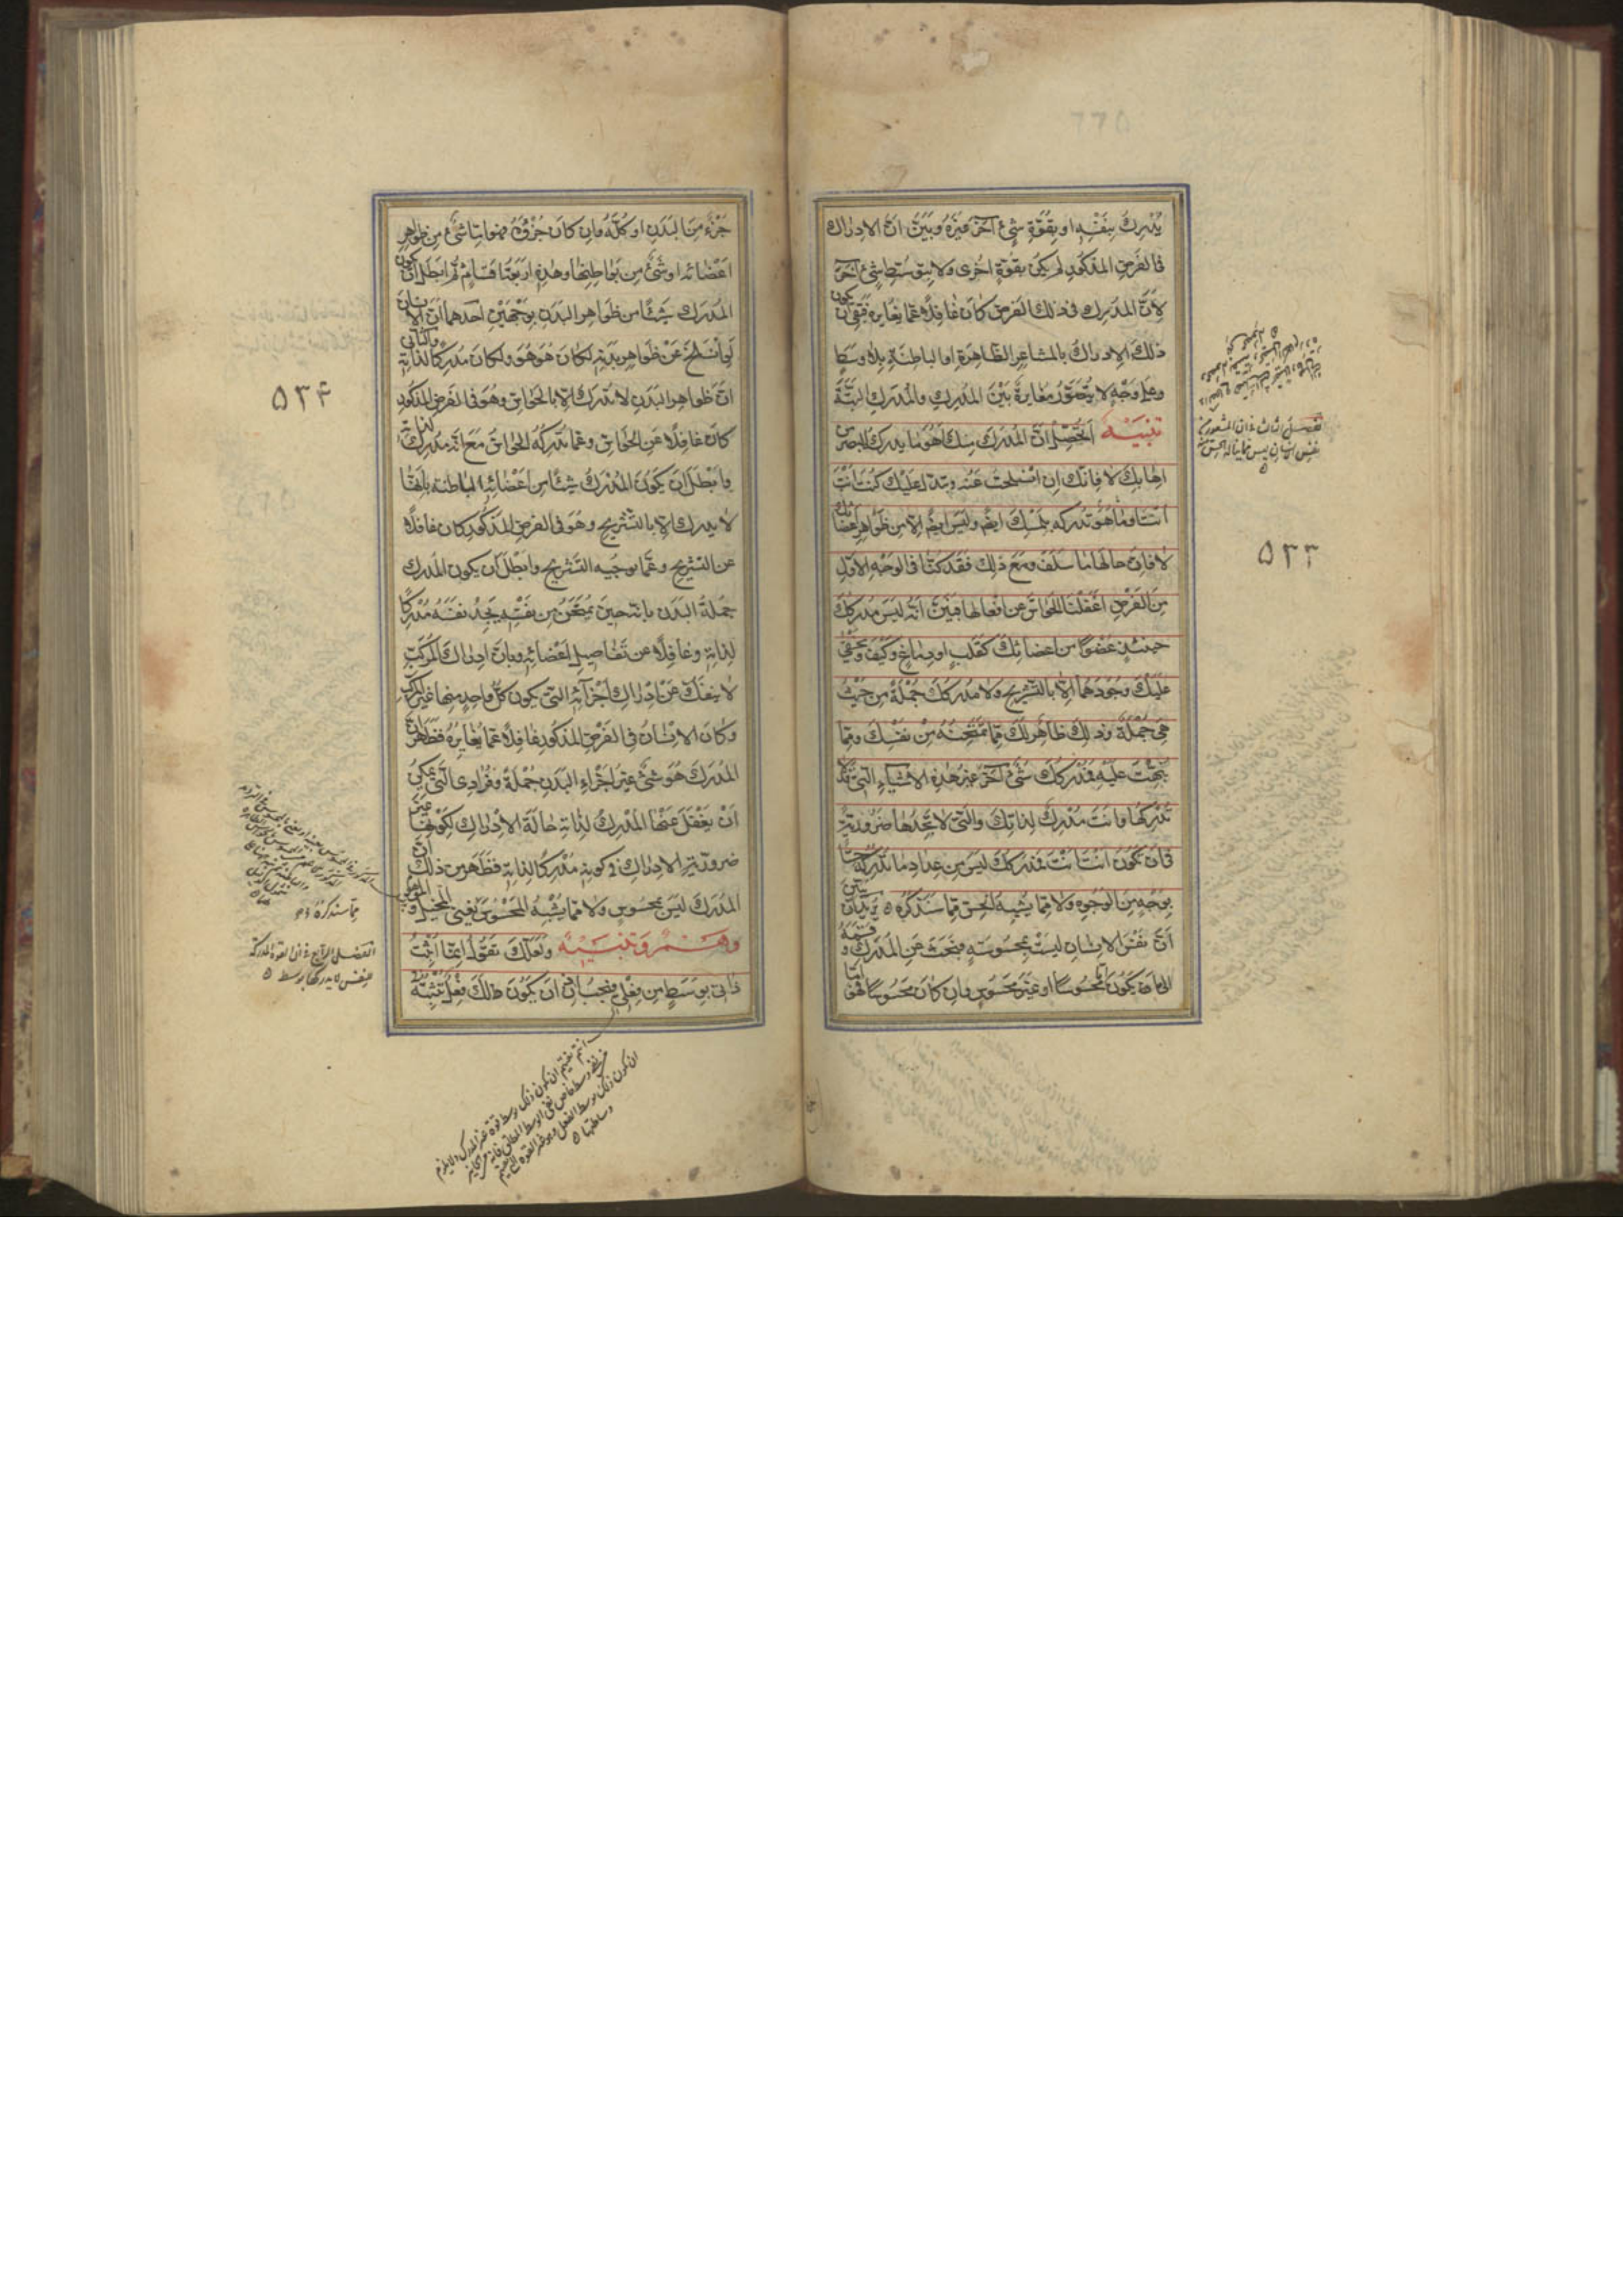 يُدْرِكُ بِنَفْسِهِ او بِقُوَّةِ شَيْءٍ آخَرَ غَيْرِهِ وبَيَّنَ انَّ الادراك
فى الفرض المذكور لم يكن بقوةٍ اخرى ولا بتوسّط شئ آخر
لأنّ المدرك فى ذلك الفرض كان غافلاً عمّا يغايره فبقى ان يكون
ذلك الادراك بالمشاعر الظاهرة او الباطنة بلا وسط
وعلى وجهٍ لا يتحقق مغايرةٌ بين المدرِك والمدرَك البتّة
تنبيه أتحصّل انّ المدرك منك أهو ما يدركه البصر من
اهابك لا فانّك ان انسلخت عنه وتبدّل عليك كنت انت
انت او ما هو تدركه بلمسك ايضا وليس ايضا الا من ظواهر اعضائك
لا فانّ حالها ما سلف ومع ذلك فقد كنّا فى الوجه الاول
من الفرض اغفلنا الحواسّ عن افعالها فبيّن انّه ليس مدركك
حينئذٍ عضوًا من اعضائك كقلب او دماغ وكيف ويخفى
عليك وجودهما الّا بالتشريح ولا مدركك جملة من حيث
هى جملة وذلك ظاهر لك ممّا تمتحنه من نفسك وممّا
نبّهت عليه فمدركك شئ آخر غير هذه الاشياء التى قد لا
تدركها وانت مدرك لذاتك والتى لا تجدها ضرورية
فى ان تكون انت انت فمدركك ليس من عداد ما تدركه حسّا
بوجه من الوجوه ولا ممّا يشبه الحسّ ممّا سنذكره ٥ يريد ان يبيّن
انّ نفس الانسان ليست بمحسوسةٍ فبحث عن المدرك وقسمه
الى ان يكون امّا محسوسًا او غير محسوس وان كان محسوسًا فهو امّا
الفصل الثالث فى ان المشعور من
٥٣٣
جزء من البدن او كلّه وان كان جزؤه فهو امّا شئ من ظواهر
اعضائه او شئ من بواطنها وهذه اربعة اقسام ثم ابطل ان يكون
المدرك شيئًا من ظواهر البدن بوجهين احدهما انّ الانسان
لو انسلخ عن ظواهر بدنه لكان هو هو ولكان مدركًا لذاته والثانى
انّ ظواهر البدن لا تدرك الا بالحواس وهو فى الفرض المذكور
كان غافلاً عن الحواسّ وعمّا تدركه الحواسّ مع انه مدرك لذاته
وابطل ان يكون المدرك شيئًا من اعضائه الباطنة بانها
لا يدرك الا بالتشريح وهو فى الفرض المذكور كان غافلاً
عن التشريح وعمّا يوجبه التشريح وابطل ان يكون المدرك
جملة البدن بانه حين يمتحن من نفسه يجد نفسه مدركًا
لذاته وغافلاً عن تفاصيل اعضائه وبانّ ادراك المركّب
لا ينفك عن ادراك اجزائه التى يكون كلّ واحد منها غير المركّب
وكان الانسان فى الفرض المذكور غافلاً عمّا يغايره فظهر انّ
المدرك هو شئ غير اجزاء البدن جملة وفرادى التى يمكن
ان يغفل عنها المدرك لذاته حالة الادراك لكونها غير
ضرورية الادراك فى كونه مدركًا لذاته فظهر من ذلك انّ
المدرك ليس بمحسوس ولا ممّا يشبه المحسوس يعنى المخيل والموهوم
وهم وتنبيه ولعلّك تقول انّما اثبت
ذاتى بوسط من فعلى فيجب اذن ان يكون لك فعل تثبته
ممّا سنذكره
الفصل الرابع فى ان القوة المدركة
للنفس لا يدركها بوسط ٥
٥٣٤